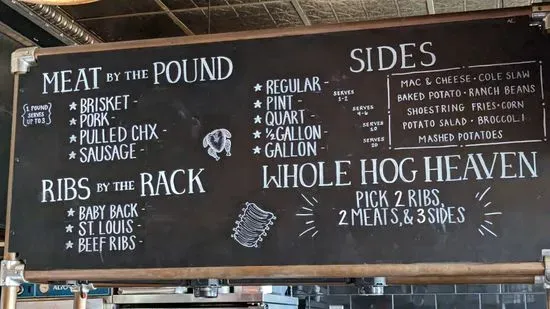 MEAT BY THE POUND
1 POUND
SERVES
UP TO 3
★ BRISKET -
★ PORK -
★ PULLED CHX -
★ SAUSAGE -
RIBS BY THE RACK
★ BABY BACK -
★ ST. LOUIS -
★ BEEF RIBS -
SIDES
★ REGULAR -
SERVES
1-2
★ PINT -
SERVES
4-6
★ QUART -
SERVES
10
★ ½ GALLON -
SERVES
20
★ GALLON -
MAC & CHEESE · COLE SLAW
BAKED POTATO · RANCH BEANS
SHOESTRING FRIES · CORN
POTATO SALAD · BROCCOLI
MASHED POTATOES
WHOLE HOG HEAVEN
PICK 2 RIBS,
2 MEATS, & 3 SIDES